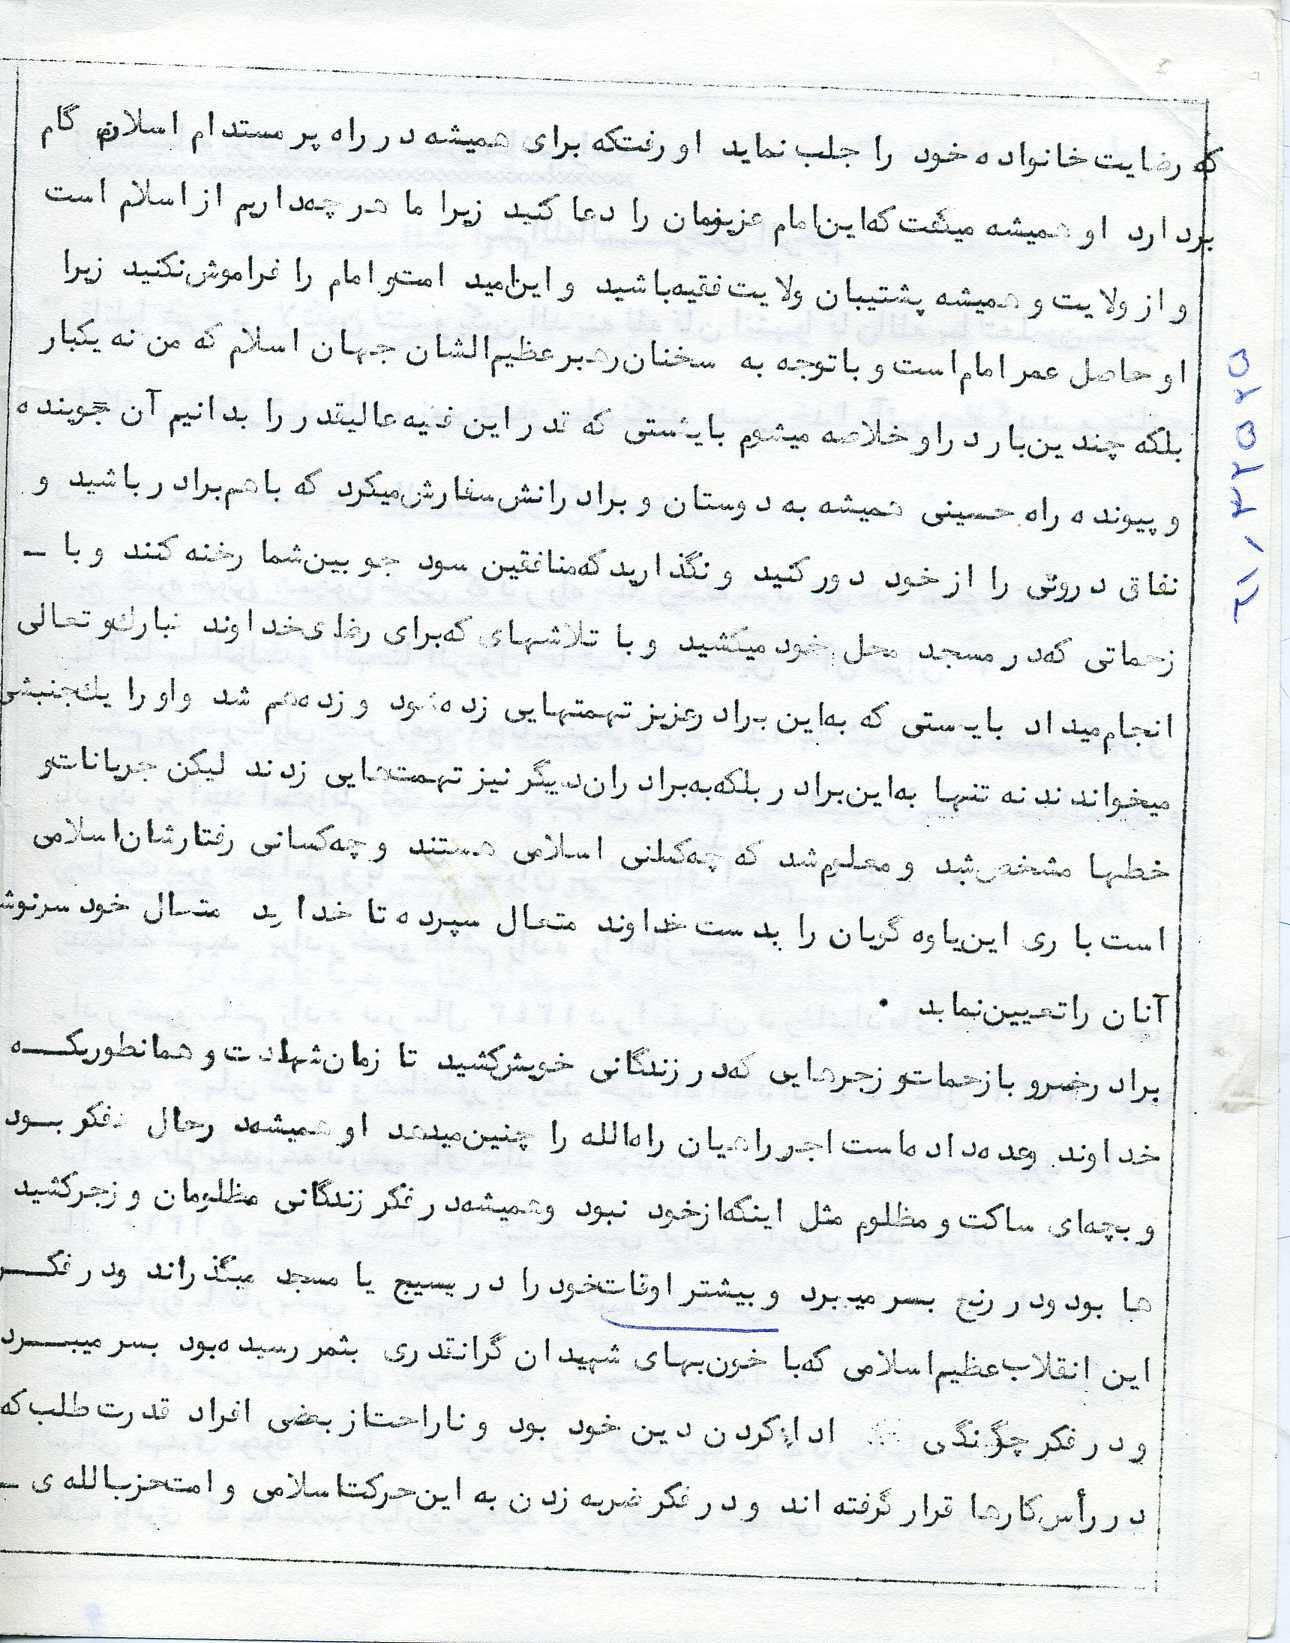 که رضایت خانواده خود را جلب نماید او رفت که برای همیشه در راه پر مستدام اسلام گام
بردارد او همیشه میگفت که این امام عزیزمان را دعا کنید زیرا ما هر چه داریم از اسلام است
و از ولایت و همیشه پشتیبان ولایت فقیه باشید و این امید امت و امام را فراموش نکنید زیرا
او حاصل عمر امام است و با توجه به سخنان رهبر عظیم الشان جهان اسلام که من نه یکبار
بلکه چندین بار در او خلاصه میشوم بایستی که قدر این فقیه عالیقدر را بدانیم آن جوینده
و پیونده راه حسینی همیشه به دوستان و برادرانش سفارش میکرد که با هم برادر باشید و
نفاق دروئی را از خود دور کنید و نگذارید که منافقین سود جو بین شما رخنه کنند و با ـ
زحماتی که در مسجد محل خود میکشید و با تلاشهای که برای رضای خداوند تبارک و تعالی
انجام میداد بایستی که به این برادر عزیز تهمتهایی زده شود و زده هم شد و او را یک جنبشی
میخواندند نه تنها به این برادر بلکه به برادران دیگر نیز تهمت هایی زدند لیکن جریانات و
خطها مشخص شد و معلوم شد که چه کسانی اسلامی هستند و چه کسانی رفتارشان اسلامی
است باری این یاوه گویان را بدست خداوند متعال سپرده تا متعال خود سرنوش
آنان را تعیین نماید .
برادر خسرو با زحمات و زجرهایی که در زندگانی خویش کشید تا زمان شهادت و همانطوریکه
خداوند وعده داده است اجر راهیان راه الله را چنین میدهد او همیشه در حال تفکر بود
و بچه ای ساکت و مظلوم مثل اینکه از خود نبود و همیشه در فکر زندگانی مظلومان و زجر کشید
ها بود و در رنج بسر میبرد و بیشتر اوقات خود را در بسیج یا مسجد میگذراند و در فکر
این انقلاب عظیم اسلامی که با خون بهای شهیدان گرانقدری بثمر رسیده بود بسر میبرد
و در فکر چگونگی ادا کردن دین خود بود و ناراحت از بعضی افراد قدرت طلب که
در رأس کارها قرار گرفته اند و در فکر ضربه زدن به این حرکت اسلامی و امت حزب الله ی ـ